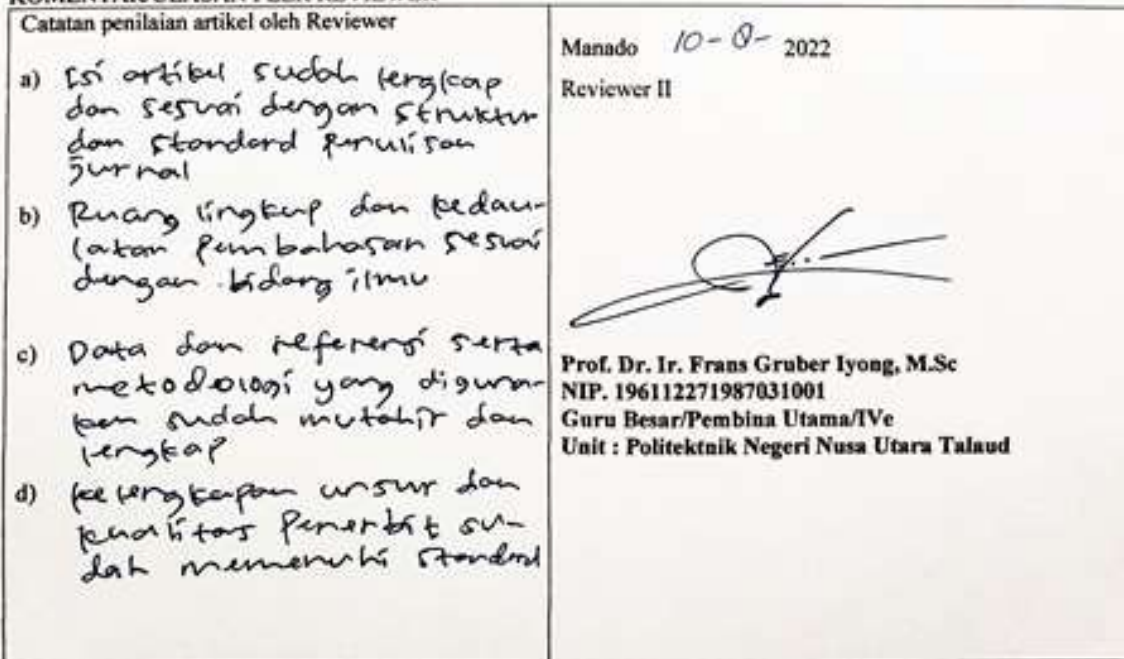 Catatan penilaian artikel oleh Reviewer
a) Isi artikel sudah lengkap
dan sesuai dengan struktur
dan standard penulisan
Jurnal
b) Ruang lingkup dan kedau-
latan pembahasan sesuai
dengan bidang ilmu
c) Data dan referensi serta
metodologi yang diguna-
kan sudah mutahir dan
lengkap
d) kelengkapan unsur dan
kualitas Penerbit su-
dah memenuhi standard
Manado 10 - - 2022
Reviewer II
Prof. Dr. Ir. Frans Gruber Iyong, M.Sc
NIP. 196112271987031001
Guru Besar/Pembina Utama/IVe
Unit : Politektnik Negeri Nusa Utara Talaud